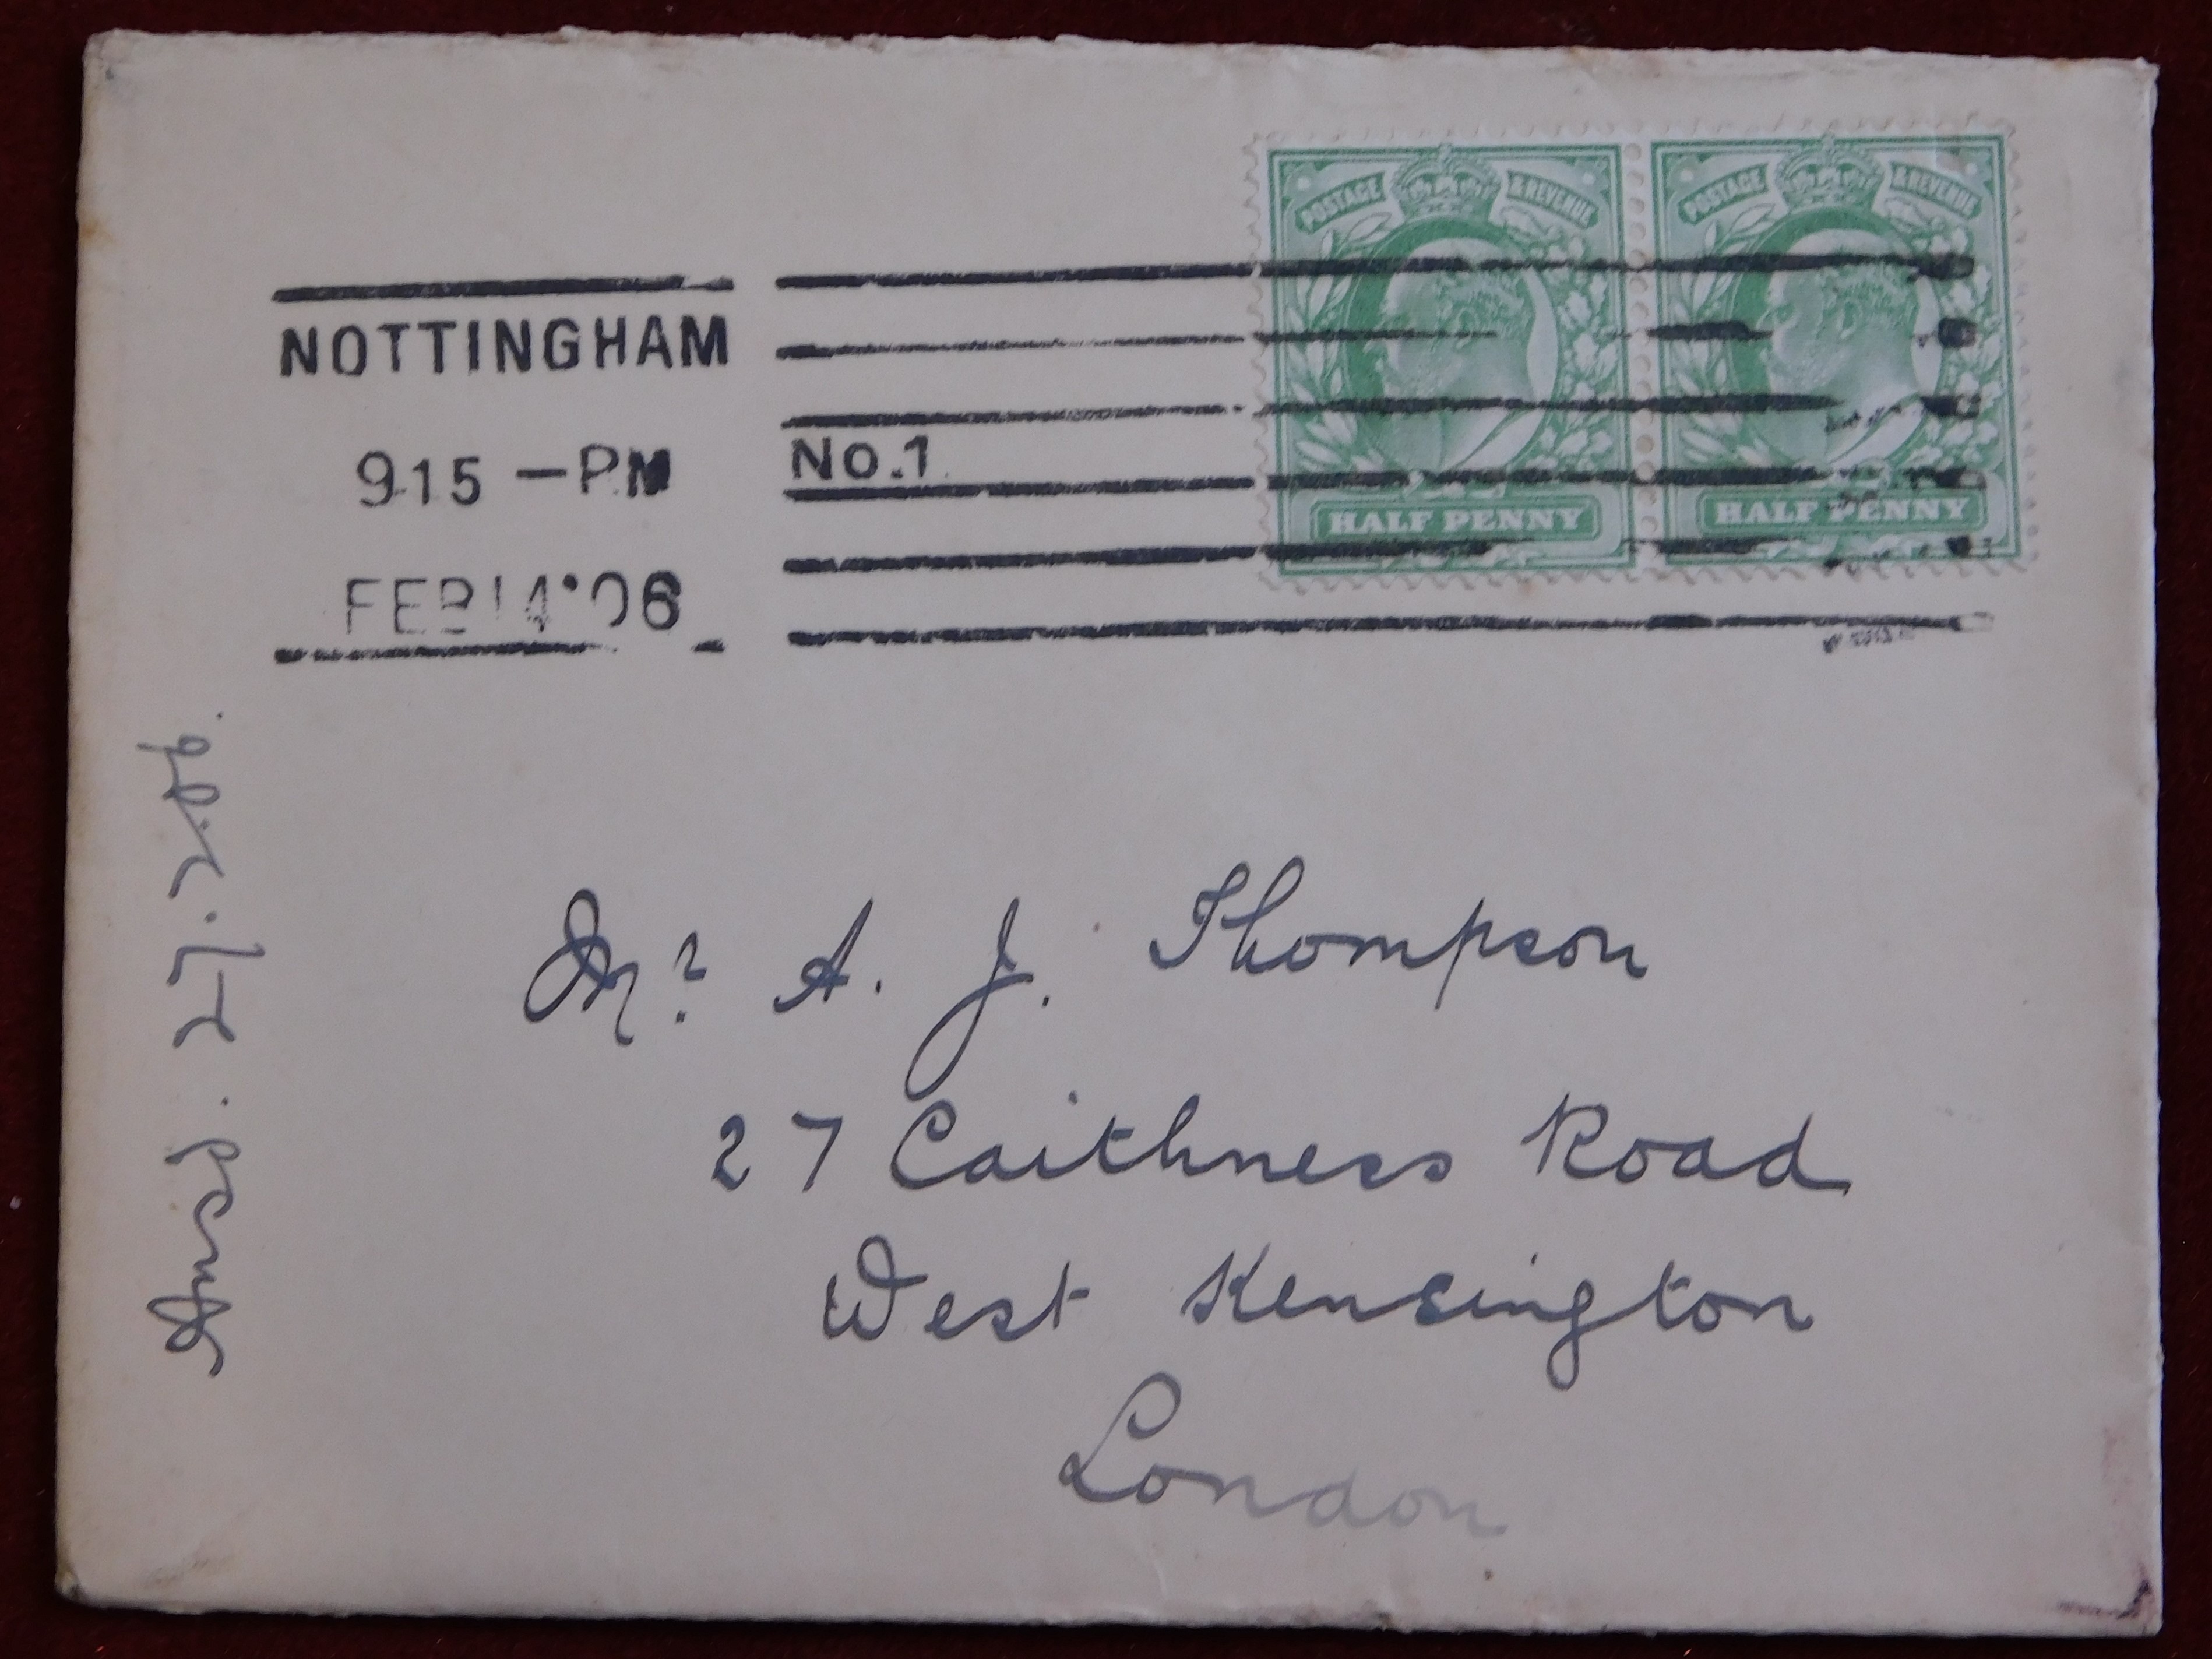 POSTAGE & REVENUE
POSTAGE & REVENUE
HALF PENNY
HALF PENNY
NOTTINGHAM
9.15 — PM
FEB 14 '06
No. 1
Mr. A. J. Thompson
27 Caithness Road
West Kensington
London
Ansd. 27.2.06.